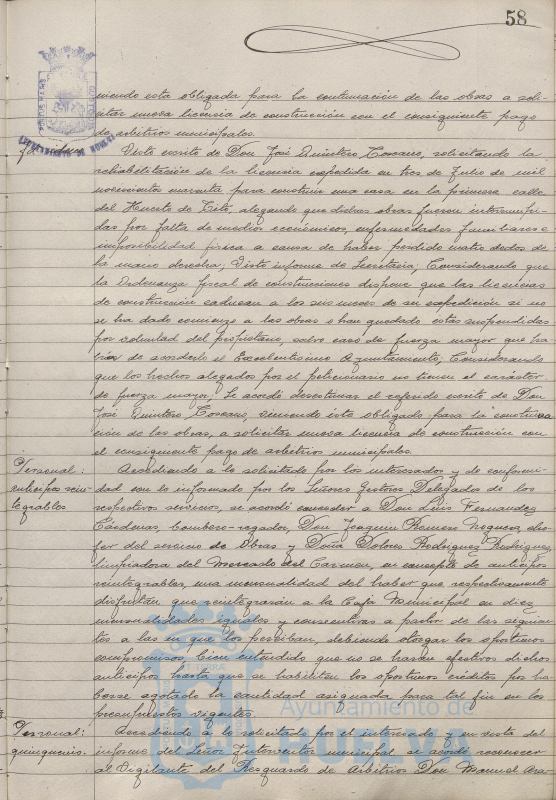 58
niendo esta obligada para la continuación de las obras a soli-
citar nueva licencia de construcción con el consiguiente pago
de arbitrios municipales.
Visto escrito de Don José Quintero Toscano, solicitando la
rehabilitación de la licencia expedida en tres de Julio de mil
novecientos cuarenta para construir una casa en la primera calle
del Huerto de Tito, alegando que dichas obras fueron interrumpi-
das por falta de medios económicos, enfermedades familiares e
imposibilidad física a causa de haber perdido cuatro dedos de
la mano derecha; Visto informe de Secretaría; Considerando que
la Ordenanza fiscal de construcciones dispone que las licencias
de construcción caducan a los seis meses de su expedición si no
se ha dado comienzo a las obras o han quedado estas suspendidas
por voluntad del propietario, salvo caso de fuerza mayor que ha-
brán de acordarlo el Excelentísimo Ayuntamiento; Considerando
que los hechos alegados por el peticionario no tienen el carácter
de fuerza mayor; Se acordó desestimar el referido escrito de Don
José Quintero Toscano, viniendo este obligado para la continua
ción de las obras, a solicitar nueva licencia de construcción con
el consiguiente pago de arbitrios municipales.
Personal:
anticipos rein-
tegrables
Accediendo a lo solicitado por los interesados y de conformi-
dad con lo informado por los Señores Gestores Delegados de los
respectivos servicios, se acordó conceder a Don Luis Fernandez
Cárdenas, bombero-regador, Don Joaquin Romero Noguera, cho-
fer del servicio de Obras y Doña Dolores Rodriguez Rodriguez,
limpiadora del Mercado del Carmen, en concepto de anticipos
reintegrables, una mensualidad del haber que respectivamente
disfrutan que reintegrarán a la Caja Municipal en diez
mensualidades iguales y consecutivas a partir de las siguien-
tes a las en que los perciban, debiendo otorgar los oportunos
compromisos, bien entendido que no se harán efectivos dichos
anticipos hasta que se habiliten los oportunos créditos por ha-
berse agotado la cantidad asignada para tal fin en los
presupuestos vigentes.
Personal:
quinquenios.
Accediendo a lo solicitado por el interesado y en vista del
informe del Señor Interventor municipal se acordó reconocer
al Vigilante del Resguardo de Arbitrios Don Manuel Ara-
Ayuntamiento de
HUELVA